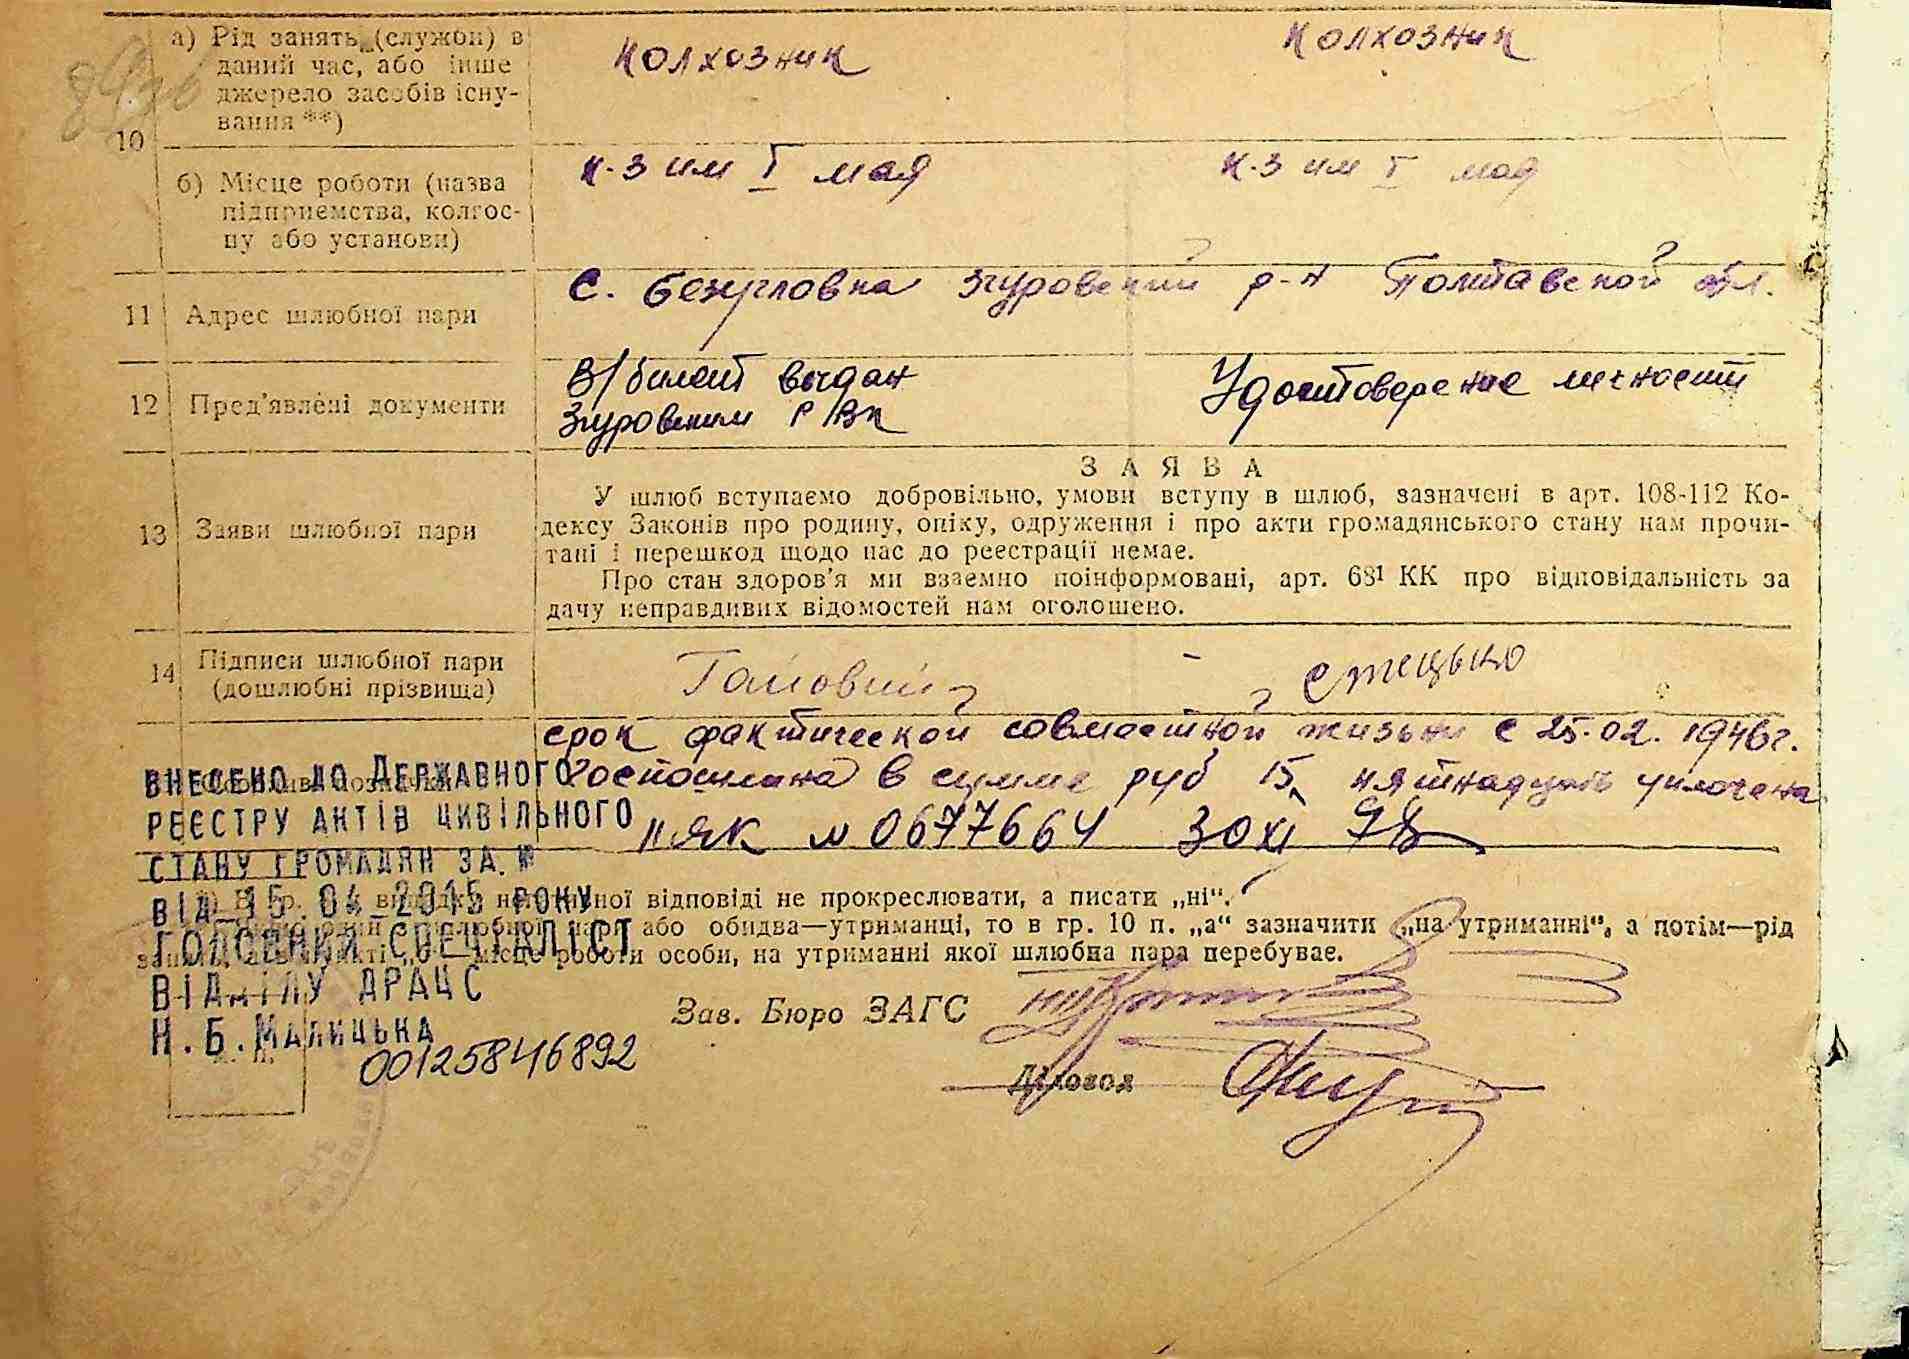 а) Рід занять (служби) в
даний час, або інше
джерело засобів існу-
вання **)
колхозник
колхозник
10
б) Місце роботи (назва
підприємства, колгос-
пу або установи)
к-з им I мая
к-з им I мая
11 Адрес шлюбної пари
с. Безугловка Згуровский р-н Полтавской обл.
12 Пред'явлені документи
В/билет выдан
Згуровским РВК
Удостоверение личности
13 Заяви шлюбної пари
ЗАЯВА
У шлюб вступаємо добровільно, умови вступу в шлюб, зазначені в арт. 108-112 Ко-
дексу Законів про родину, опіку, одруження і про акти громадянського стану нам прочи-
тані і перешкод щодо нас до реєстрації немає.
Про стан здоров'я ми взаємно поінформовані, арт. 68¹ КК про відповідальність за
дачу неправдивих відомостей нам оголошено.
14 Підписи шлюбної пари
(дошлюбні прізвища)
Гайовий
Стецько
срок фактической совместной жизни с 25.02.1946г.
Госпошлина в сумме руб 15, пятнадцать уплочена
II ЯК № 0677664 30 XI 78
ВНЕСЕНО ДО ДЕРЖАВНОГО
РЕЄСТРУ АКТІВ ЦИВІЛЬНОГО
СТАНУ ГРОМАДЯН ЗА №
ВІД 15.04 2015 РОКУ
ГОЛОВНИЙ СПЕЦІАЛІСТ
ВІДДІЛУ ДРАЦС
Н.Б.МАЛИЦЬКА
00125846892
відповіді не прокреслювати, а писати „ні".
або обидва—утриманці, то в гр. 10 п. „а" зазначити „на утриманні", а потім—рід
місце роботи особи, на утриманні якої шлюбна пара перебуває.
Зав. Бюро ЗАГС
Діловод